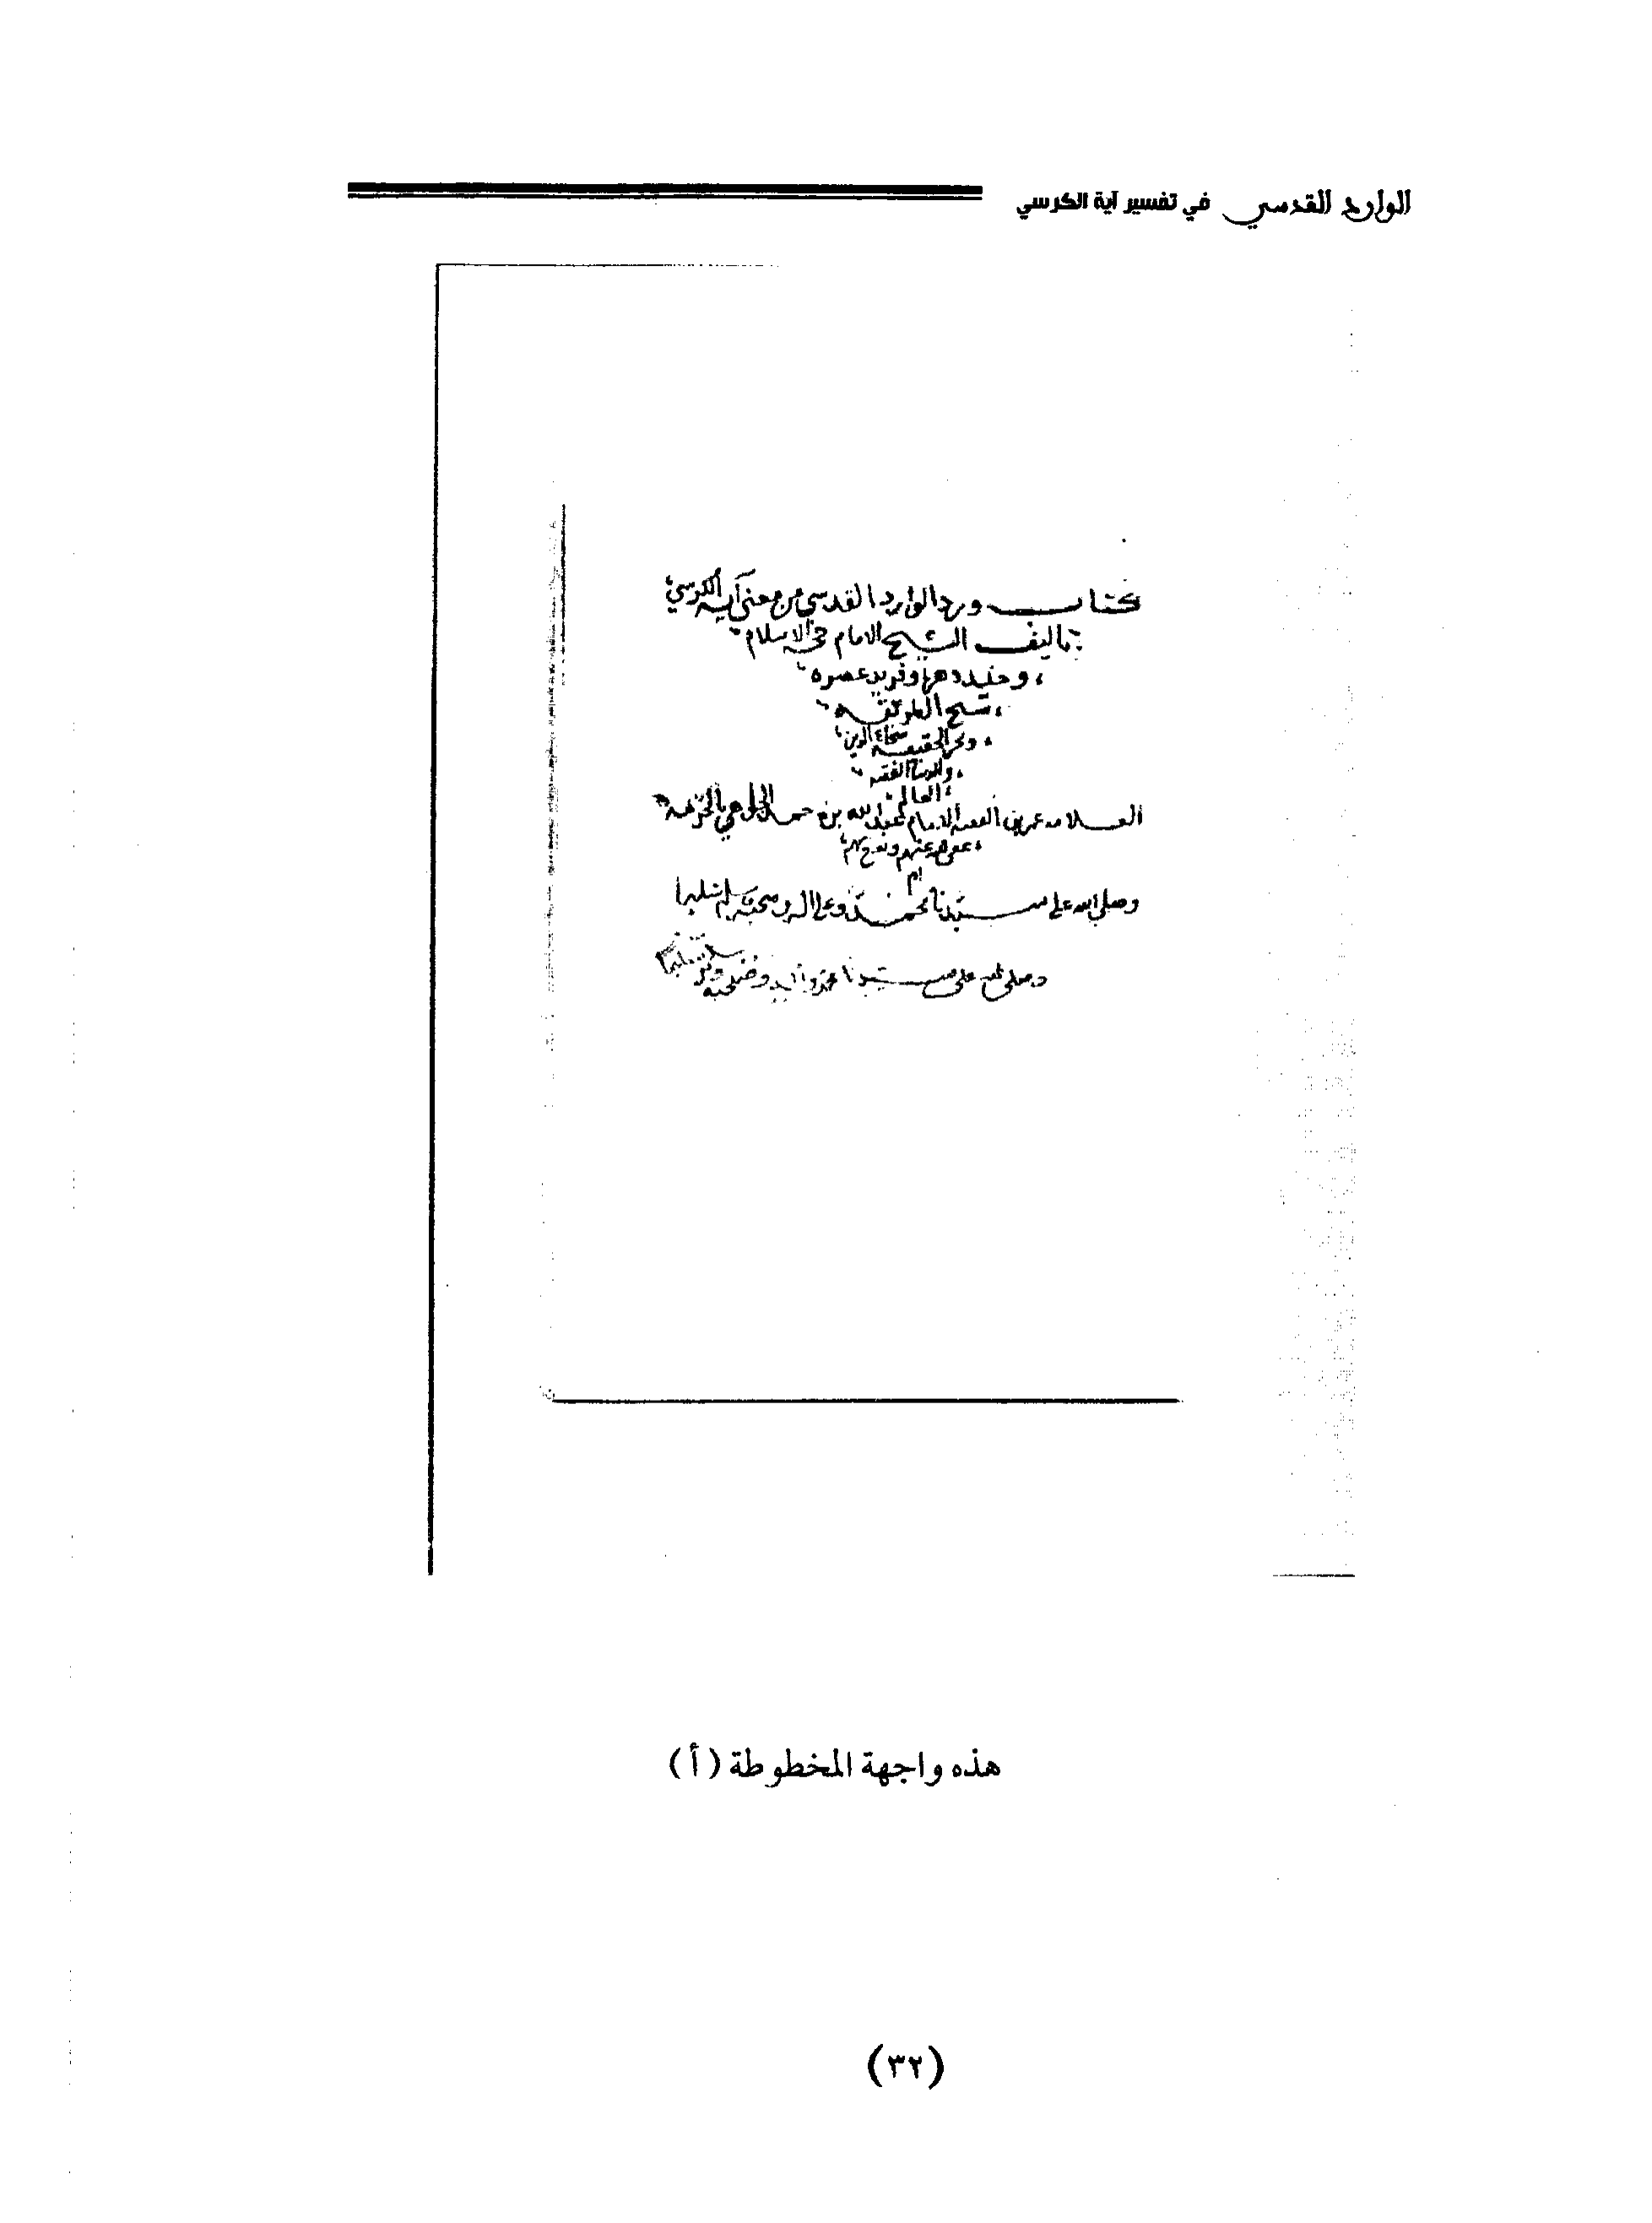 الوارد القدسي في تفسير آية الكرسي
كتاب ورد الوارد القدسي من معنى آية الكرسي
تاليف الشيخ الامام حجة الاسلام
وحيد دهره وفريد عصره
شيخ الطريقه
وبحر الحقيقه
العالم
العلامه عمر بن الفقيه الامام عبد الله بن
وصلى الله على سيدنا محمد وعلى اله وصحبه وسلم تسليما
وصلى الله على سيدنا محمد وآله وصحبه وسلم تسليما
هذه واجهة المخطوطة (أ)
(٣٢)